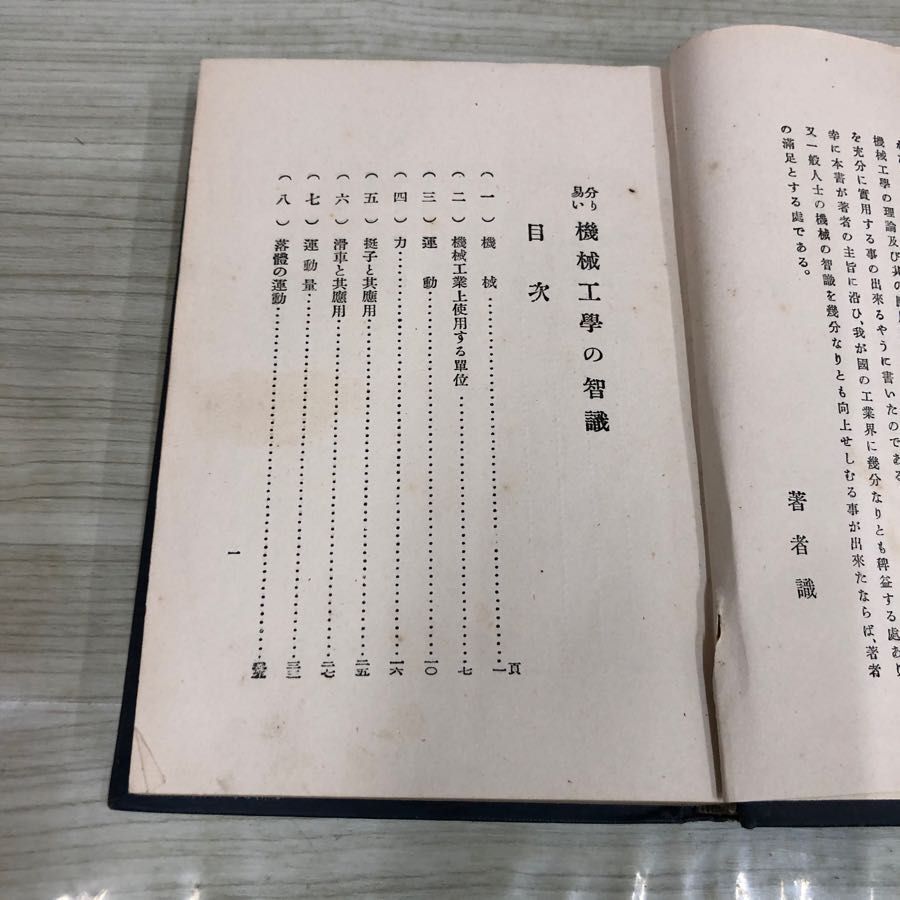 機械工學の理論及び其の
を充分に實用する事の出來るやうに書いたのである
幸に本書が著者の主旨に沿ひ、我が國の工業界に幾分なりとも稗益する處あり
又一般人士の機械の智識を幾分なりとも向上せしむる事が出來たならば、著者
の滿足とする處である。
著者識
分り易い 機械工學の智識
目次
頁
(一) 機械 一
(二) 機械工業上使用する單位 七
(三) 運動 一〇
(四) 力 一六
(五) 挺子と其應用 二五
(六) 滑車と其應用 二七
(七) 運動量 三三
(八) 落體の運動
一